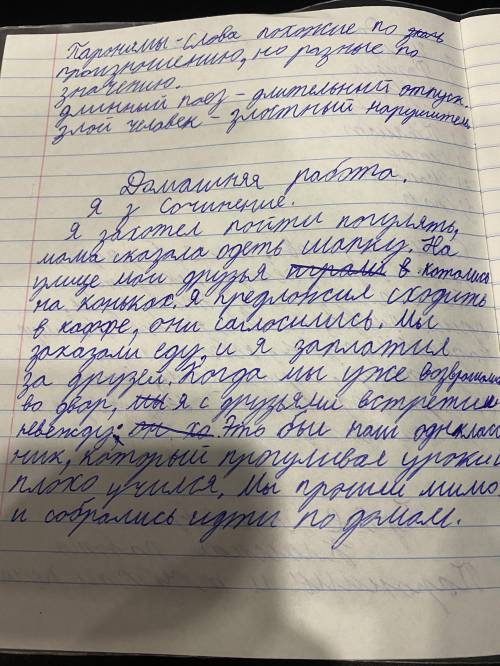 Паронимы - слова похожие по
произношению, но разные по
значению.
длинный поез - длительный отпуск.
злой человек - злостный нарушитель
Домашняя работа.
Я з Сочинение.
Я захотел пойти погулять,
мама сказала одеть шапку. На
улице мои друзья играли в катались
на коньках. Я предложил сходить
в каффе, они согласились. Мы
заказали еду, и я заплатил
за друзей. Когда мы уже возвращались
во двор, мы я с друзьями встретили
невежду: он хо. Это был наш одноклас
ник, который прогуливая уроки
плохо учился, Мы прошли мимо
и собрались идти по домам.